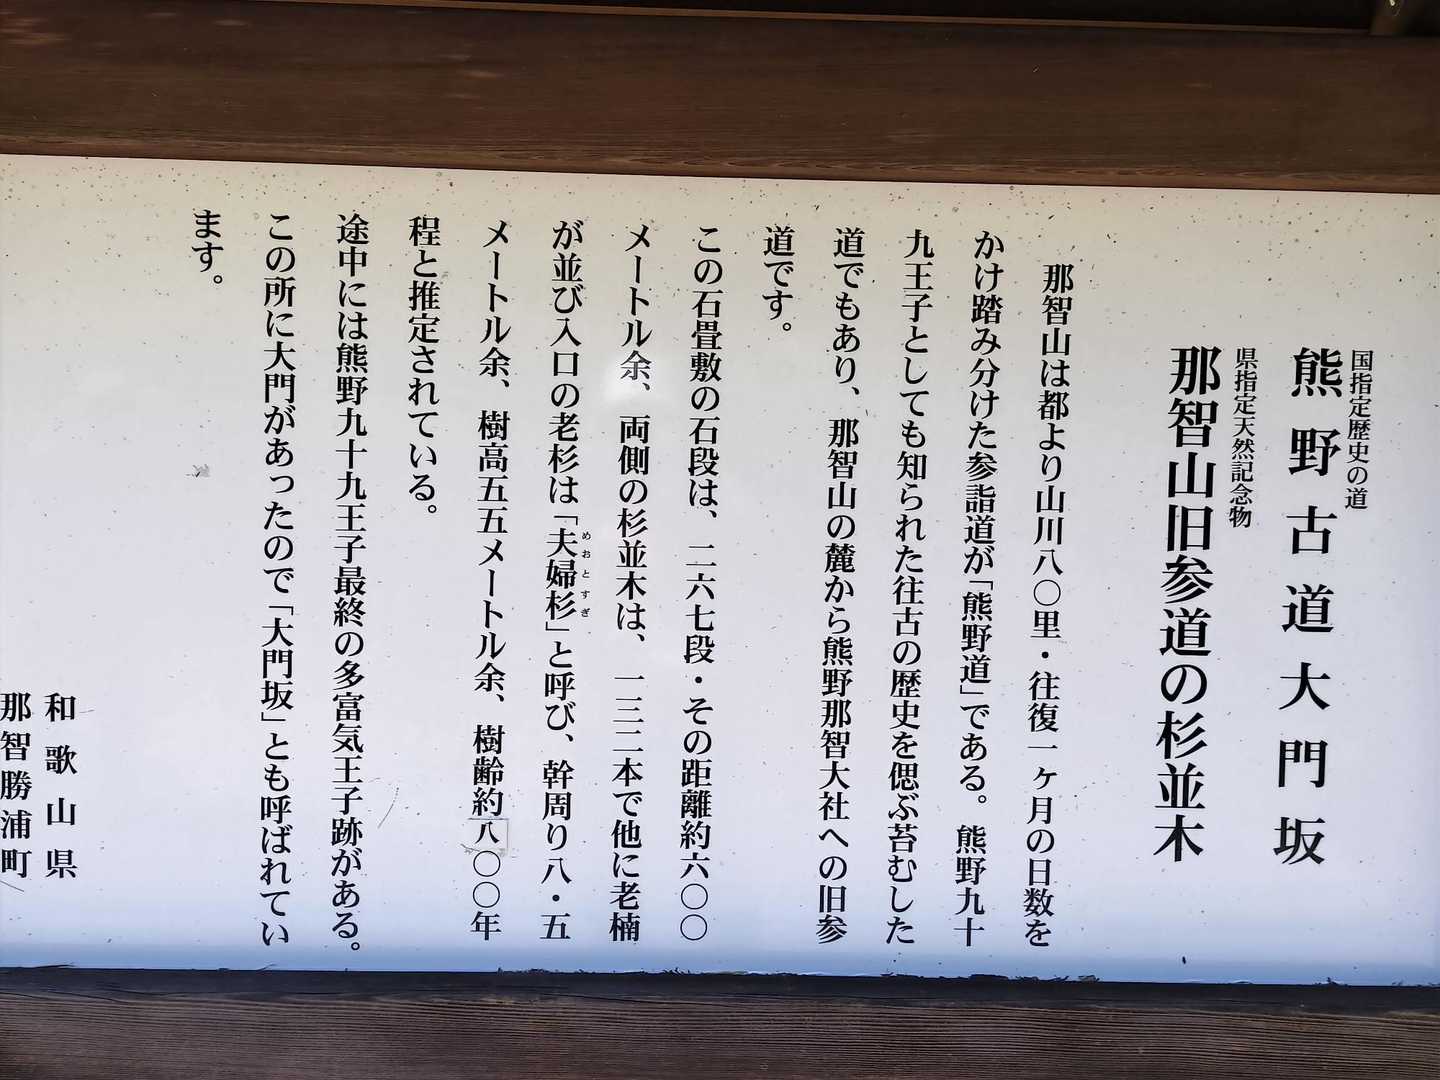 国指定歴史の道
熊野古道大門坂
県指定天然記念物
那智山旧参道の杉並木
那智山は都より山川八〇里・往復一ヶ月の日数を
かけ踏み分けた参詣道が「熊野道」である。熊野九十
九王子としても知られた往古の歴史を偲ぶ苔むした
道でもあり、那智山の麓から熊野那智大社への旧参
道です。
この石畳敷の石段は、二六七段・その距離約六〇〇
メートル余、両側の杉並木は、一三二本で他に老楠
が並び入口の老杉は「夫婦杉」と呼び、幹周り八・五
めおとすぎ
メートル余、樹高五五メートル余、樹齢約八〇〇年
程と推定されている。
途中には熊野九十九王子最終の多富気王子跡がある。
この所に大門があったので「大門坂」とも呼ばれてい
ます。
和歌山県
那智勝浦町